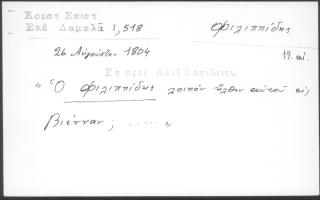 Κοραή Επιστ
Έκδ Δαμαλά 1,518
Φιλιππίδης
26 Αὐγούστου 1804
19. αἰ.
Ἐπ. πρὸς Ἀλέξ Βασιλείου
" Ὁ Φιλιππίδης λοιπὸν ἦλθεν αὐτοῦ εἰς
Βιέννην; ..... "